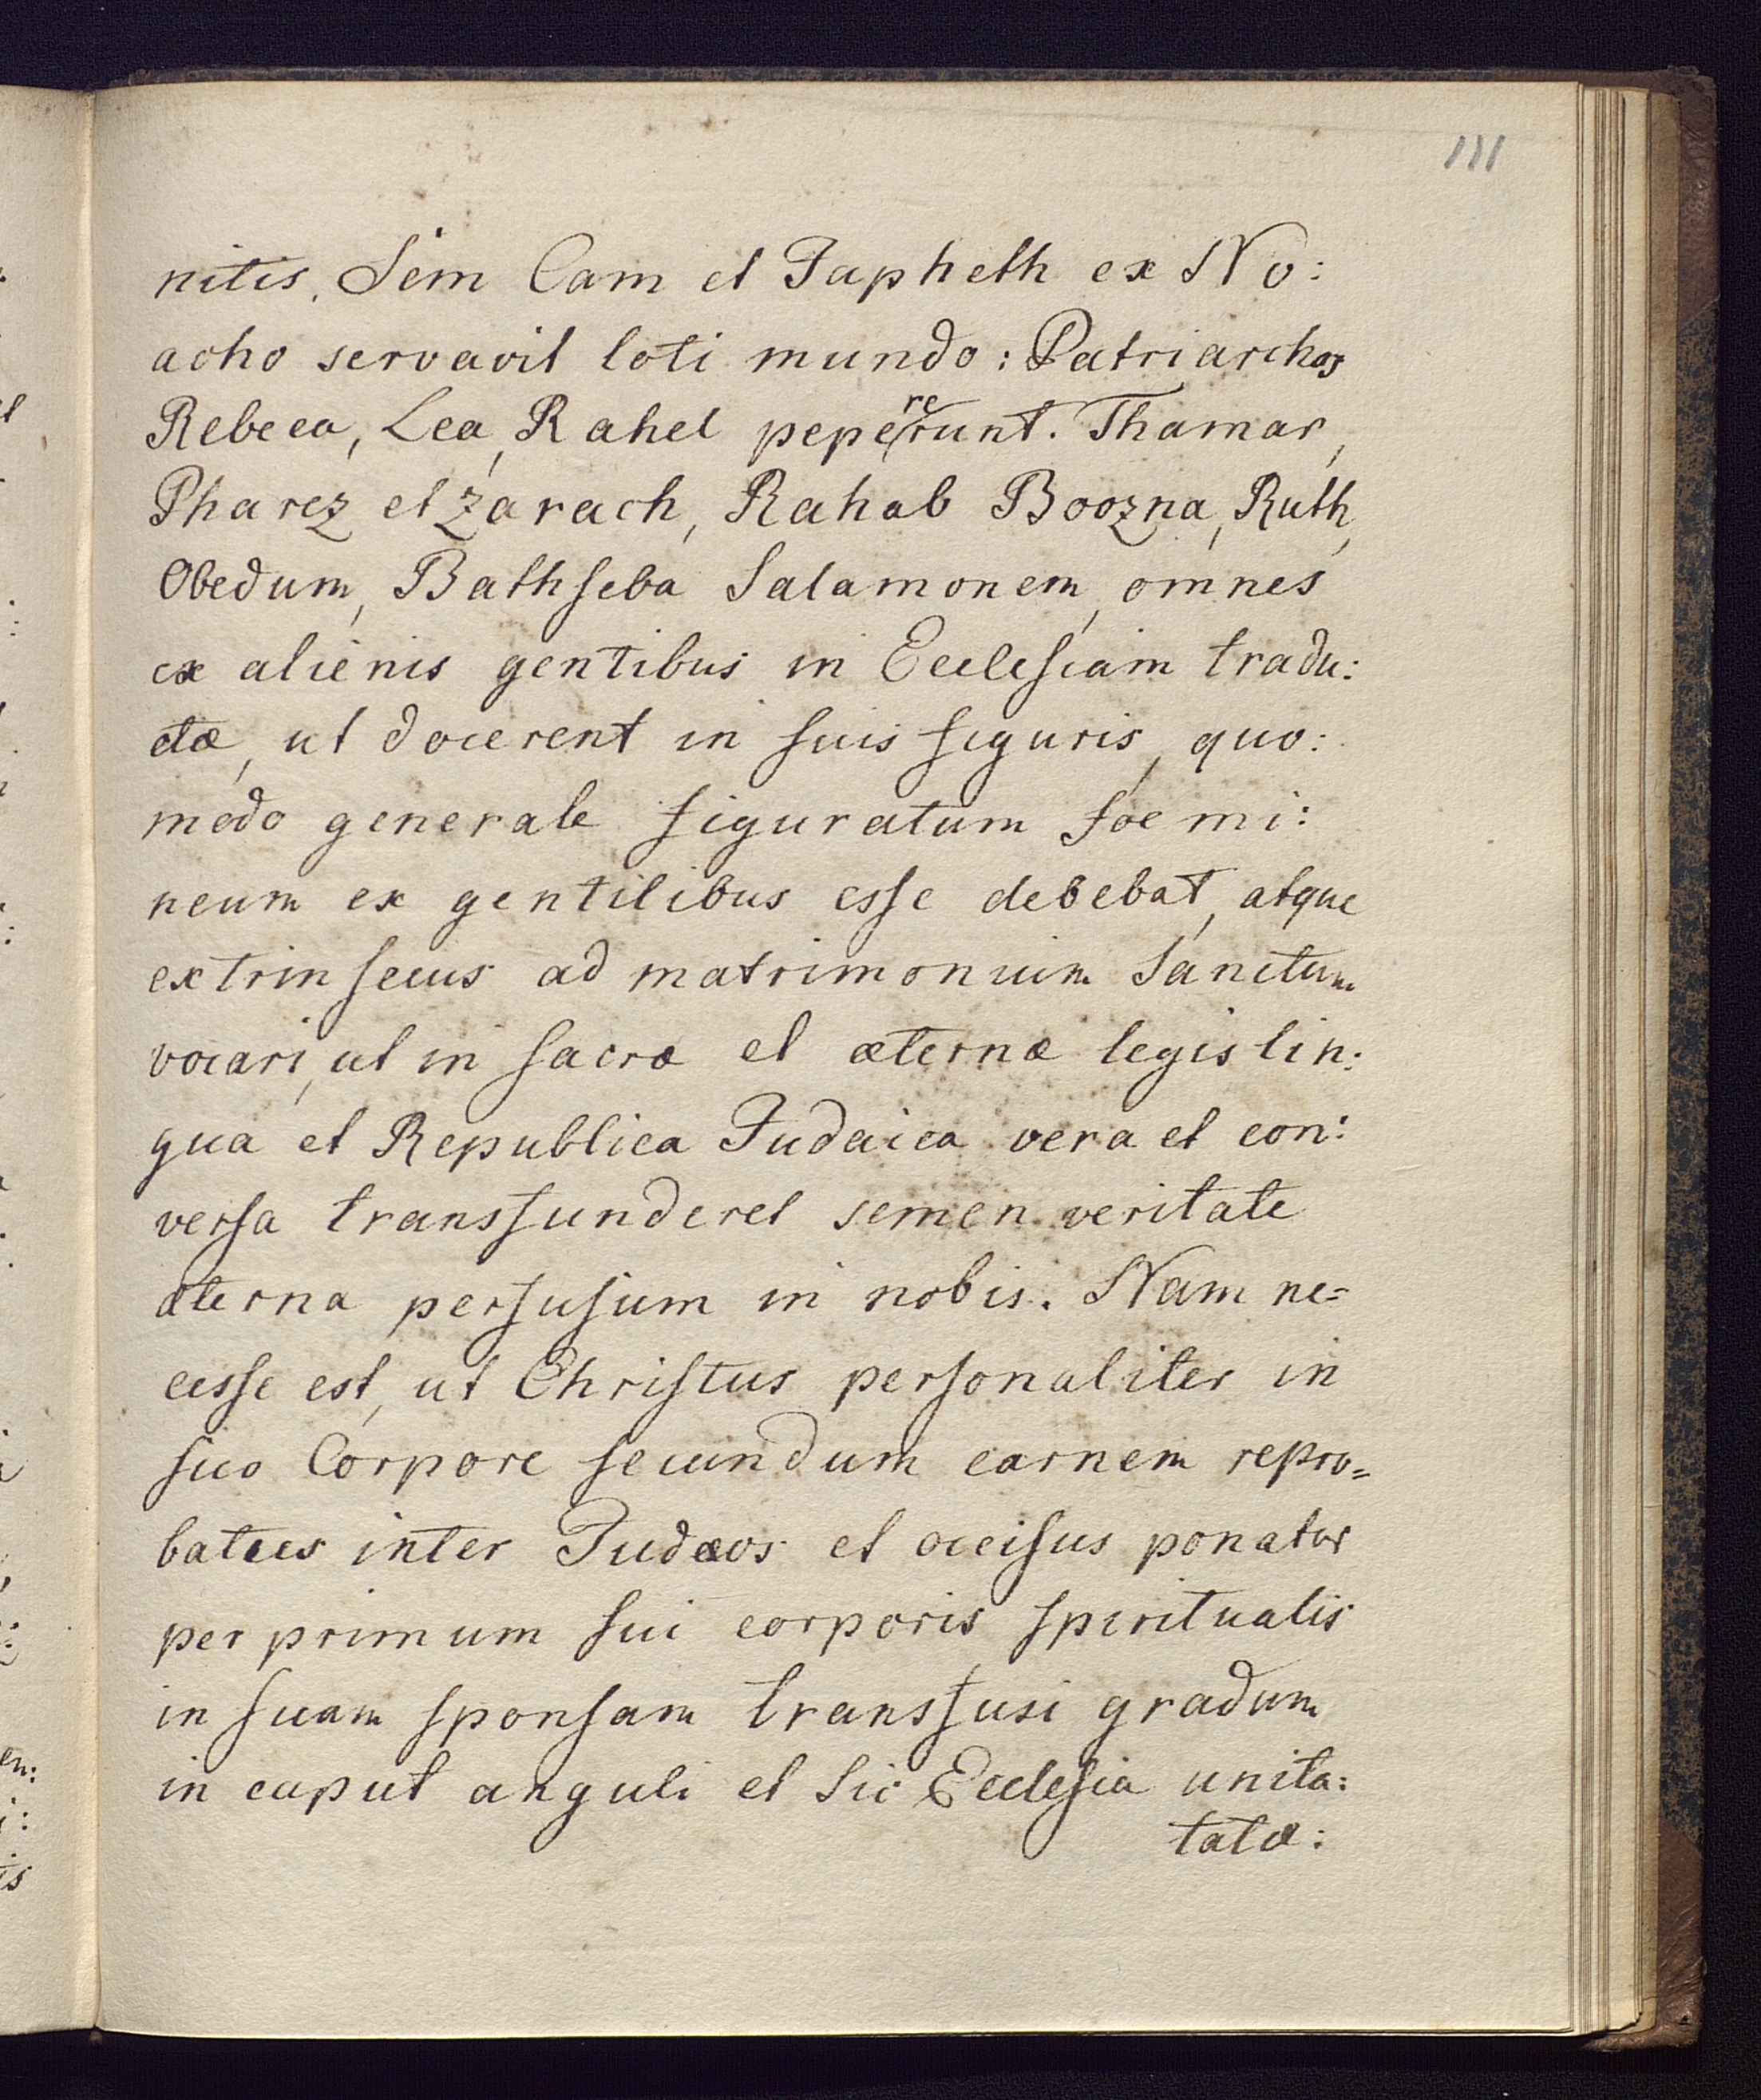 111
nitis. Sem Cam et Japheth ex No:
acho servavit toti mundo: Patriarchas
Rebeca, Lea, Rahel pepererunt. Thamar,
Pharez et Zarach, Rahab Boozna, Ruth,
Obedum, Bathſeba Salamonem, omnes
ex alienis gentibus in Eccleſiam tradu:
ctæ, ut docerent in ſuis figuris, quo:
modo generale figuratum foemi:
neum ex gentilibus eſse debebat, atque
extrinſecus ad matrimonium Sanctum
vocari, ut in ſacra et æternæ legis lin:
gua et Republica Judaica vera et con:
verſa transfunderet semen veritate
æterna perfuſum in nobis. Nam ne=
ceſse est, ut Chriſtus perſonaliter in
ſuo Corpore ſecundum carnem repro=
batus inter Judæos et occiſus ponatur
per primum ſui corporis ſpiritualis
in ſuam ſponſam transfusi gradum
in caput anguli et Sic Eccleſia unita:
tatæ: